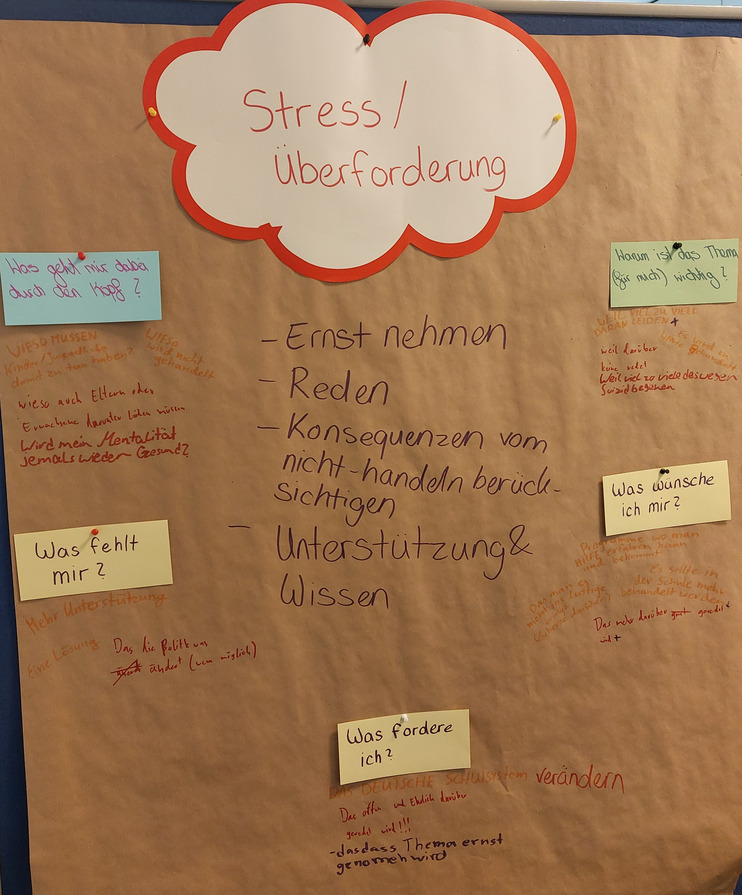 Stress /
Überforderung
Was geht mir dabei
durch den Kopf?
WIESO MÜSSEN
Kinder/Jugendliche
damit zu tun haben?
WIESO
wird nicht
gehandelt
wieso auch Eltern oder
Erwachsene darunter leiden müssen
Wird mein Mentalität
jemals wieder Gesund?
Warum ist das Thema
(für mich) wichtig?
WEIL VIEL ZU VIELE
DARAN LEIDEN +
weil darüber
keine redet
Weil viel zu viele deswegen
Suizid begehen
- Ernst nehmen
- Reden
- Konsequenzen vom
nicht-handeln berück-
sichtigen
- Unterstützung &
Wissen
Was fehlt
mir?
Mehr Unterstützung
Eine Lösung
Das die Politik was
ändert (wenn möglich)
Was wünsche
ich mir?
Programme wo man
Hilfe erfahren kann
und bekommt
Es sollte in
der Schule mehr
behandelt werden
Das mehr darüber geredet
wird +
Was fordere
ich?
DAS DEUTSCHE SCHULSYSTEM verändern
Das offen und Ehrlich darüber
geredet wird!!!
- dasdass Thema ernst
genomen wird